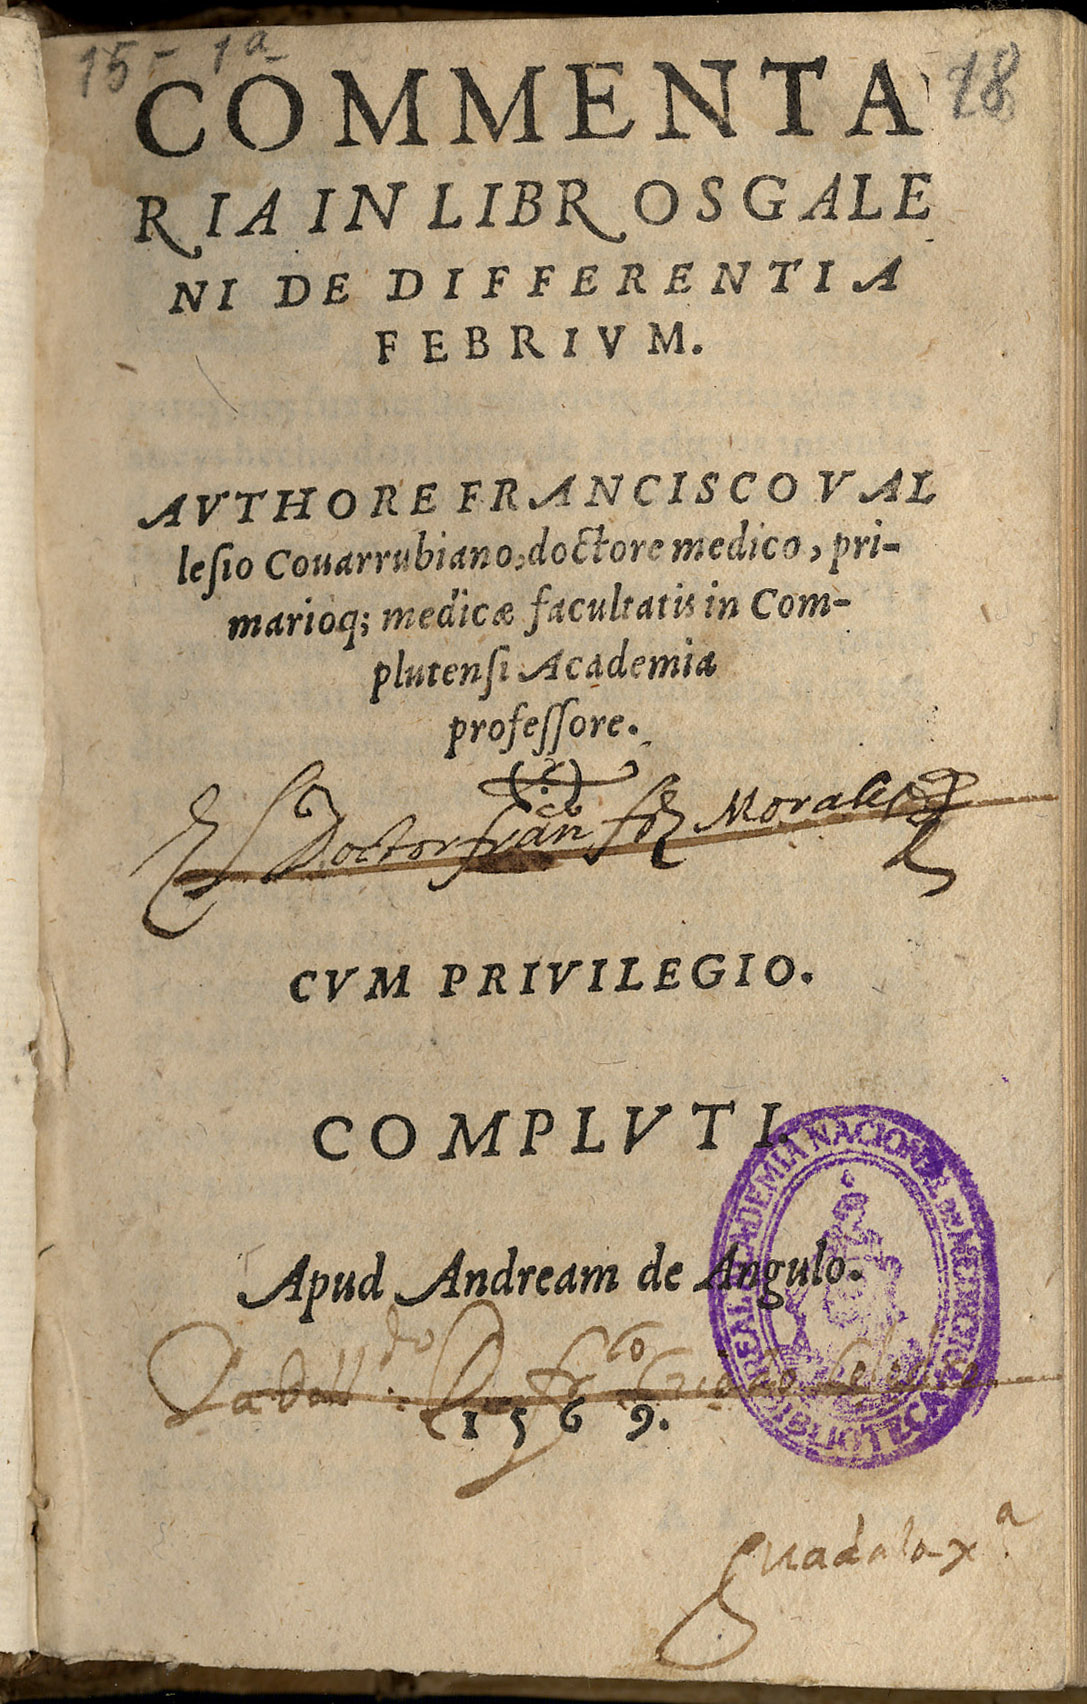 15 - 1ª
18
COMMENTA
RIA IN LIBROS GALE
NI DE DIFFERENTIA
FEBRIVM.
AVTHORE FRANCISCO VAL
lesio Couarrubiano, doctore medico, pri-
marioq; medicæ facultatis in Com-
plutensi Academia
professore.
Doctor fran^co frz Morales
CVM PRIVILEGIO.
COMPLVTI.
Apud Andream de Angulo.
1569.
REAL ACADEMIA NACIONAL DE MEDICINA
BIBLIOTECA
Guadalaxª